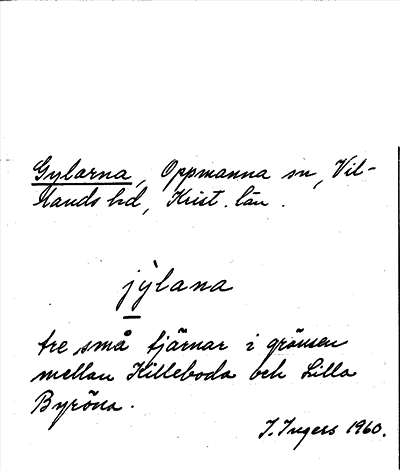 Gylarna, Oppmanna sn, Vil-
lands hd, Krist. län.
jỳlana
tre små tjärnar i gränsen
mellan Killeboda och Lilla
Byröna.
I. Ingers 1960.